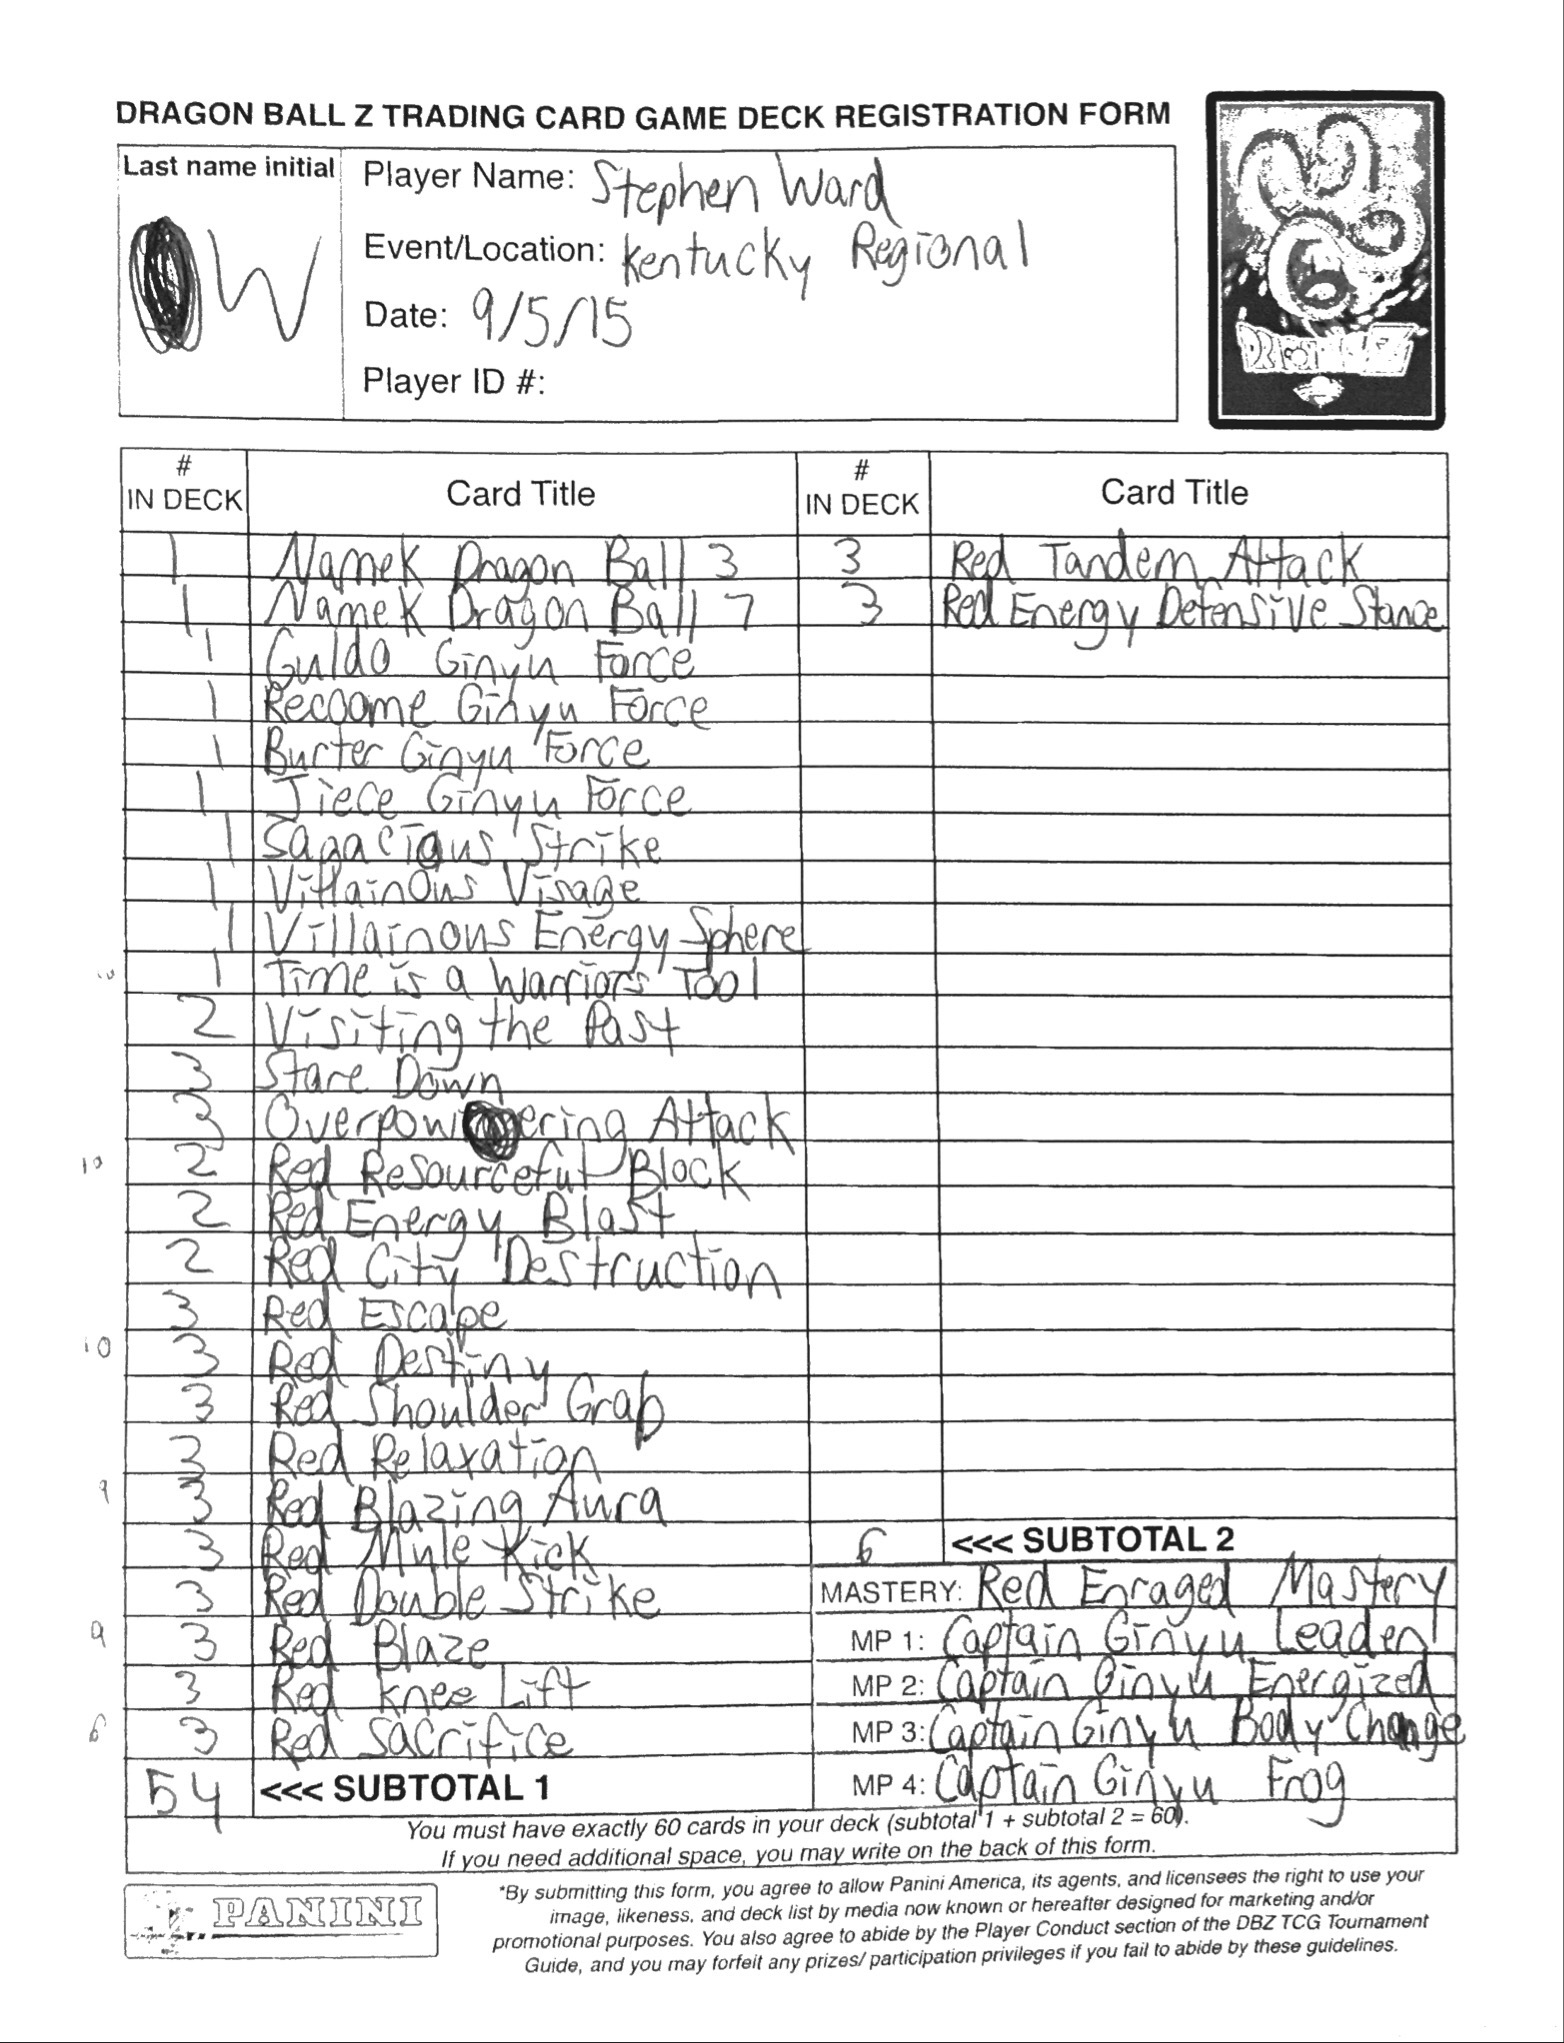 DRAGON BALL Z TRADING CARD GAME DECK REGISTRATION FORM
Last name initial
W
Player Name: Stephen Ward
Event/Location: Kentucky Regional
Date: 9/5/15
Player ID #:
# IN DECK Card Title # IN DECK Card Title
1 Namek Dragon Ball 3 3 Red Tandem Attack
1 Namek Dragon Ball 7 3 Red Energy Defensive Stance
1 Guldo Ginyu Force
1 Recoome Ginyu Force
1 Burter Ginyu Force
1 Jiece Ginyu Force
1 Sagacious Strike
1 Villainous Visage
1 Villainous Energy Sphere
1 Time is a Warriors Tool
2 Visiting the Past
3 Stare Down
3 Overpowering Attack
10 2 Red Resourceful Block
2 Red Energy Blast
2 Red City Destruction
3 Red Escape
10 3 Red Destiny
3 Red Shoulder Grab
3 Red Relaxation
9 3 Red Blazing Aura
3 Red Mule Kick
3 Red Double Strike
9 3 Red Blaze
3 Red Knee Lift
6 3 Red Sacrifice
54 <<< SUBTOTAL 1
6 <<< SUBTOTAL 2
MASTERY: Red Enraged Mastery
MP 1: Captain Ginyu Leader
MP 2: Captain Ginyu Energized
MP 3: Captain Ginyu Body Change
MP 4: Captain Ginyu Frog
You must have exactly 60 cards in your deck (subtotal 1 + subtotal 2 = 60).
If you need additional space, you may write on the back of this form.
PANINI
*By submitting this form, you agree to allow Panini America, its agents, and licensees the right to use your
image, likeness, and deck list by media now known or hereafter designed for marketing and/or
promotional purposes. You also agree to abide by the Player Conduct section of the DBZ TCG Tournament
Guide, and you may forfeit any prizes/ participation privileges if you fail to abide by these guidelines.